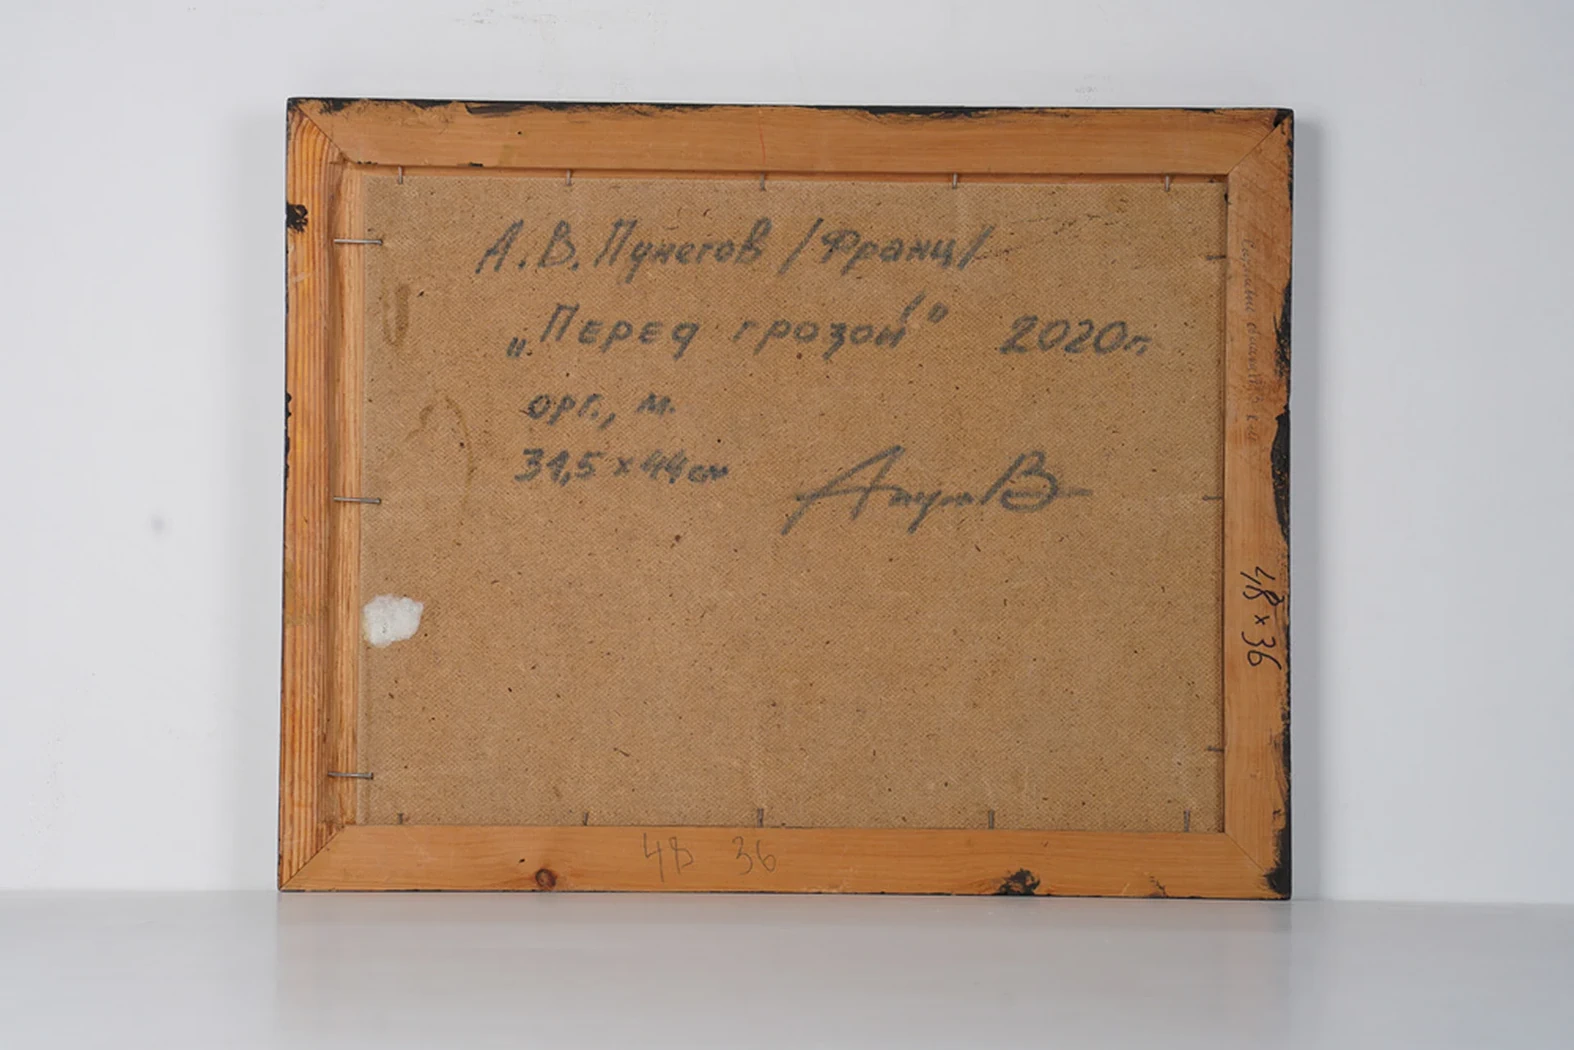 А.В. Пунегов /Франц/
„Перед грозой" 2020г.
орг., м.
31,5 х 44 см
48 х 36
48 36